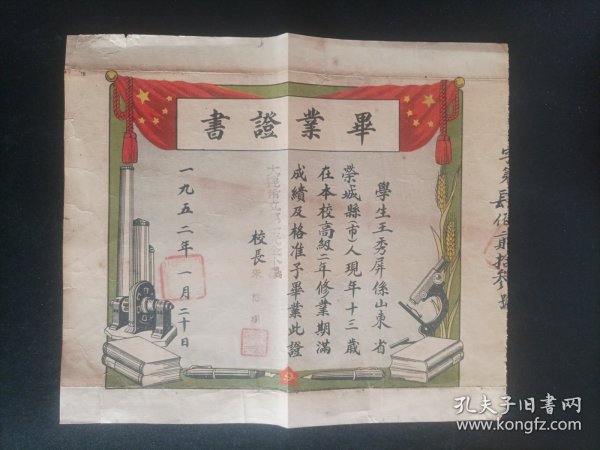 畢業證書
學生王秀屏係山東省
榮城縣(市)人現年十三歲
在本校高級二年修業期滿
成績及格准予畢業此證
校長
一九五二年一月二十日
孔夫子旧书网
www.kongfz.com